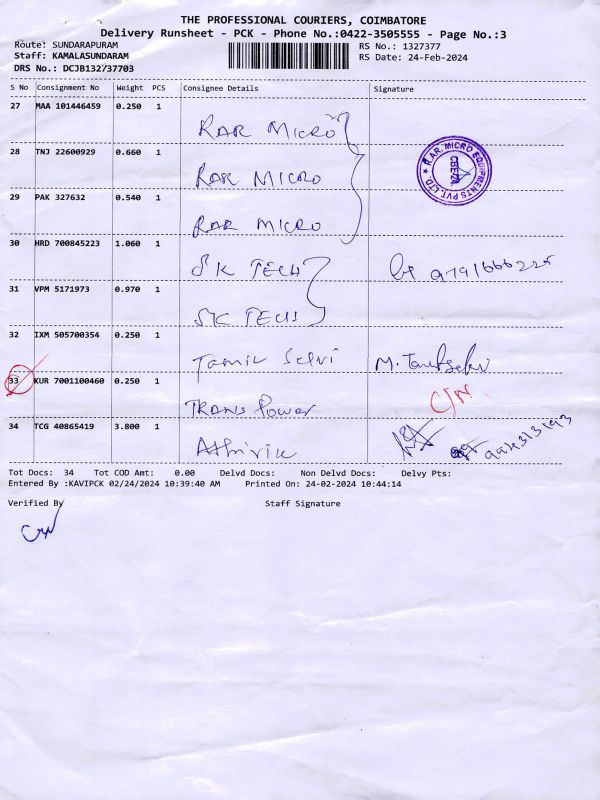 THE PROFESSIONAL COURIERS, COIMBATORE
Delivery Runsheet - PCK - Phone No.:0422-3505555 - Page No.:3
Route: SUNDARAPURAM
RS No.: 1327377
Staff: KAMALASUNDARAM
RS Date: 24-Feb-2024
DRS No.: DCJB132737703
S No Consignment No Weight PCS Consignee Details Signature
27 MAA 101446459 0.250 1
RAR MICRO
28 TNJ 22600929 0.660 1
RAR MICRO
R.A.R. MICRO EQUIPMENTS PVT. LTD. ★
29 PAK 327632 0.540 1
RAR MICRO
30 HRD 700845223 1.060 1
SK TECH
31 VPM 5171973 0.970 1
SK TECH
32 IXM 505700354 0.250 1
Tamil Selvi
33 KUR 7001100460 0.250 1
TRANS Power
34 TCG 40865419 3.800 1
Tot Docs: 34 Tot COD Amt: 0.00 Delvd Docs: Non Delvd Docs: Delvy Pts:
Entered By :KAVIPCK 02/24/2024 10:39:40 AM Printed On: 24-02-2024 10:44:14
Verified By Staff Signature